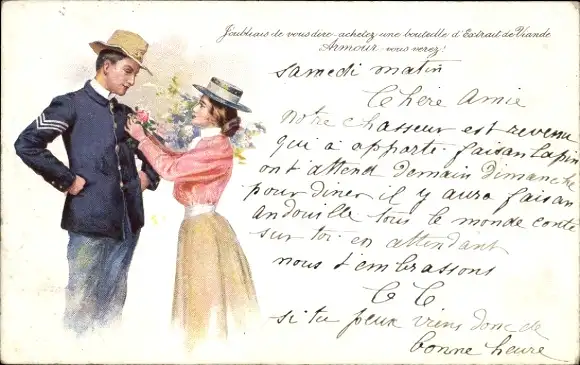 J'oubliais de vous dire - achetez une bouteille d'Extrait de Viande
Armour vous verez!
samedi matin
Chère Amie
notre chasseur est revenu
qui à apporté faisan lapin
ont t'attend demain dimanche
pour diner il y aura faisan
andouille tous le monde conte
sur toi en attendant
nous t'embrassons
C C
si tu peux viens donc de
bonne heure